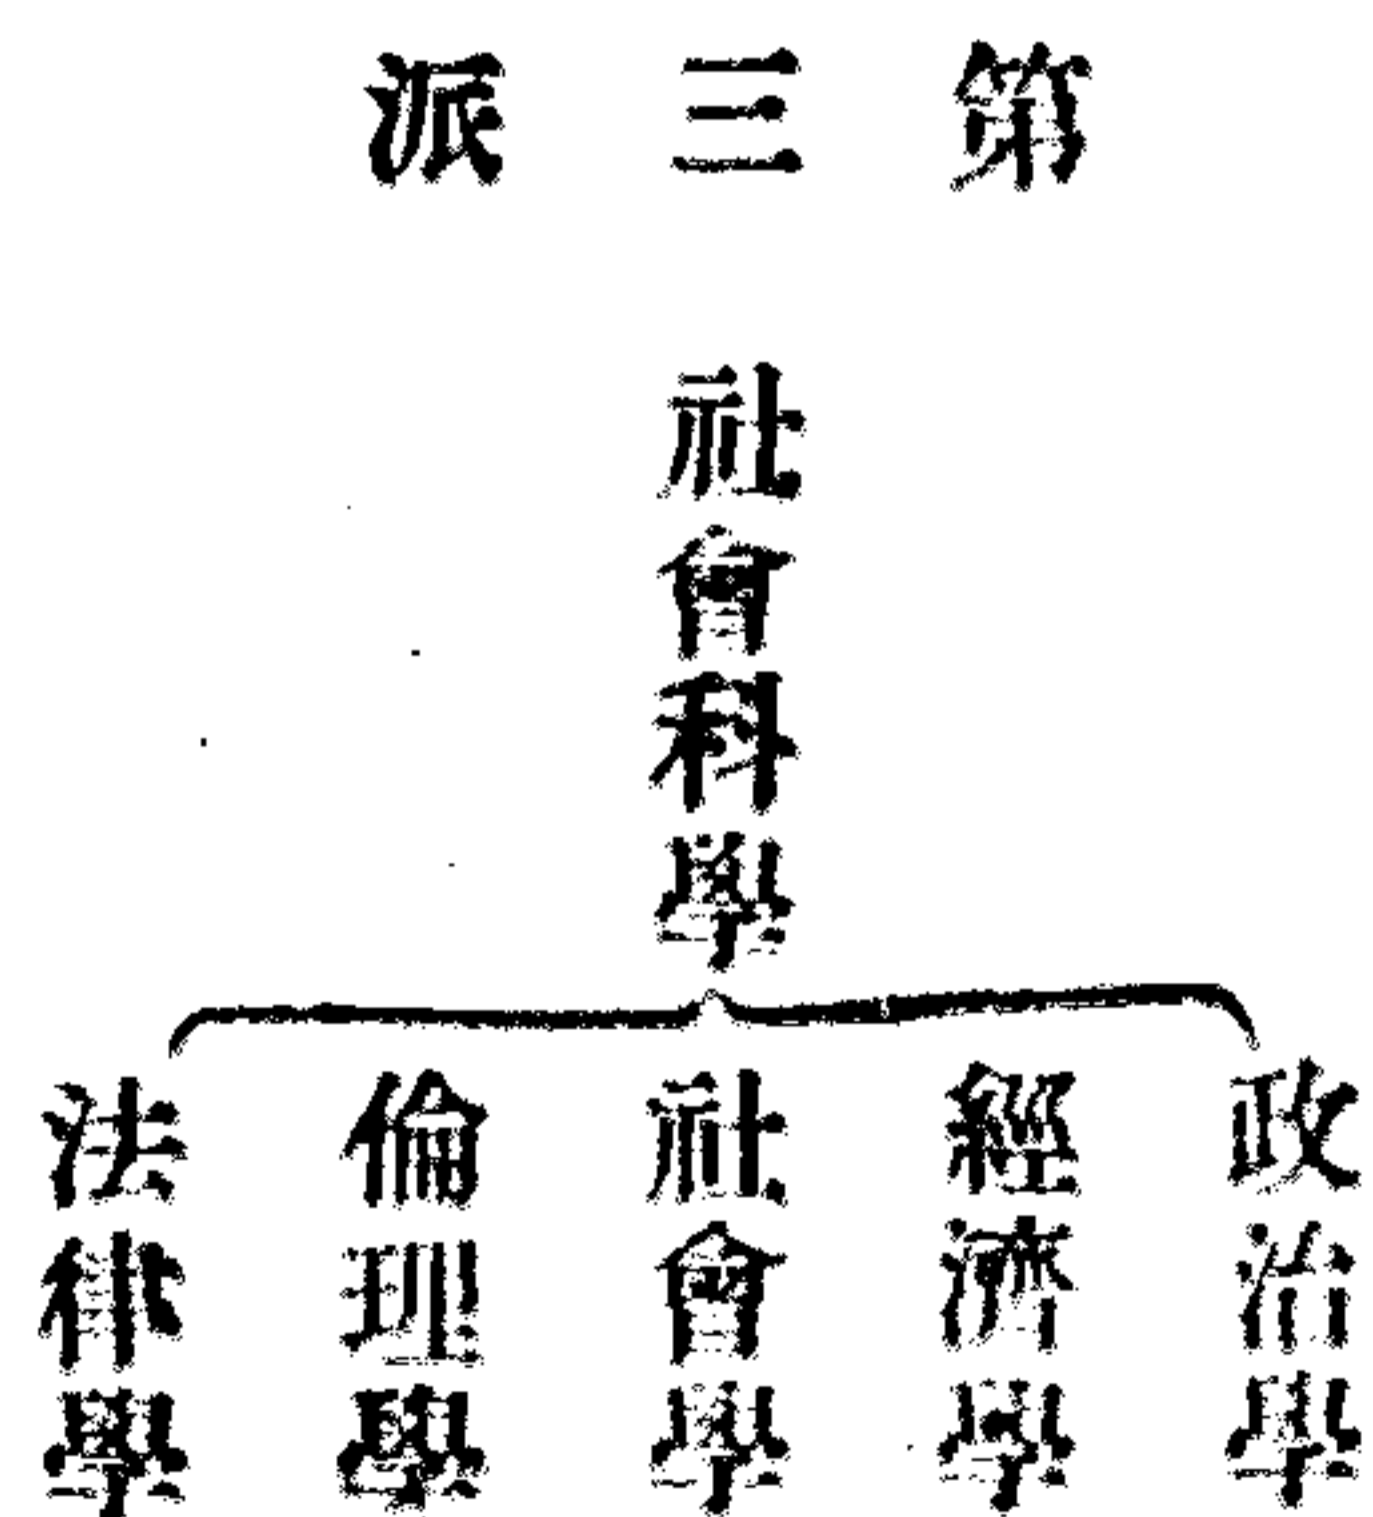 第三派
社會科學
政治學
經濟學
社會學
倫理學
法律學